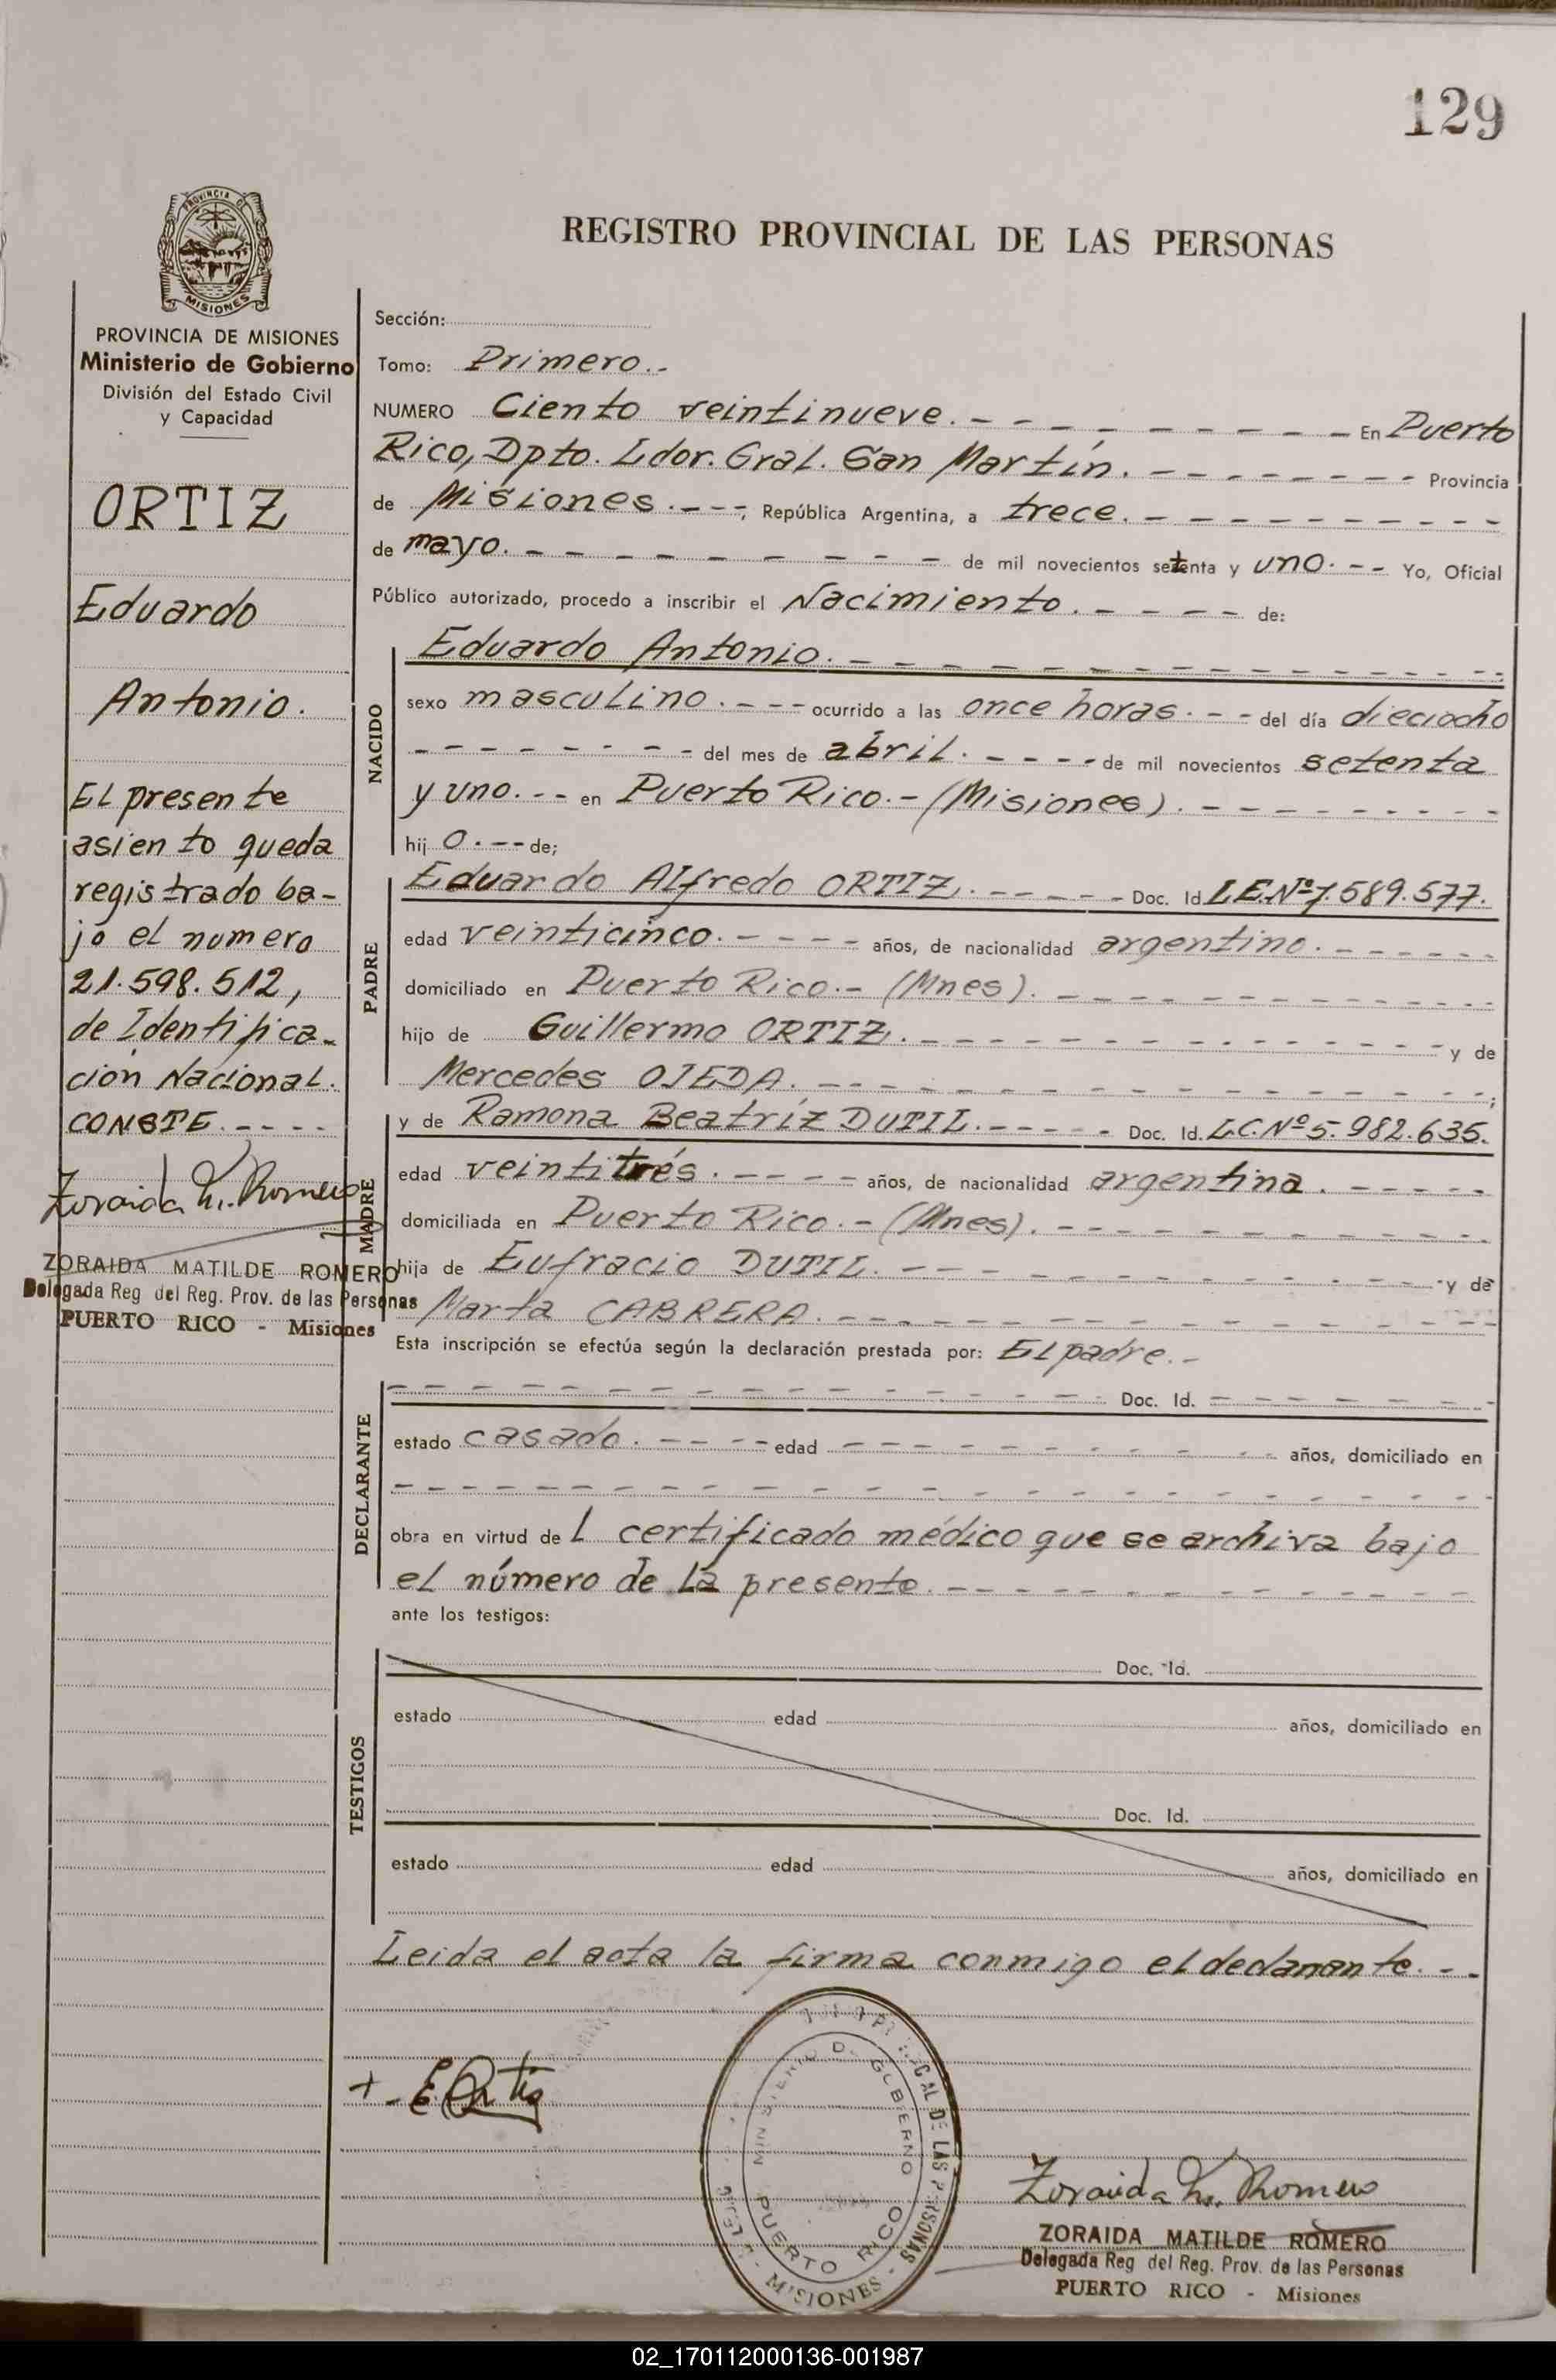 129
PROVINCIA DE
MISIONES
REGISTRO PROVINCIAL DE LAS PERSONAS
PROVINCIA DE MISIONES
Ministerio de Gobierno
División del Estado Civil
y Capacidad
ORTIZ
Eduardo
Antonio.
El presente
asiento queda
registrado ba-
jo el numero
21.598.512,
de Identifica-
ción Nacional.
CONSTE.----
Zoraida M. Romero
ZORAIDA MATILDE ROMERO
Delegada Reg del Reg. Prov. de las Personas
PUERTO RICO - Misiones
Sección:
Tomo: Primero.-
NUMERO Ciento veintinueve.--------- En Puerto
Rico, Dpto. Ldor. Gral. San Martín.------- Provincia
de Misiones.---, República Argentina, a trece.---------
de mayo.--------- de mil novecientos setenta y uno.-- Yo, Oficial
Público autorizado, procedo a inscribir el Nacimiento.---- de:
NACIDO
Eduardo Antonio.---------------
sexo masculino.--- ocurrido a las once horas.-- del día dieciocho
-------- del mes de abril.---- de mil novecientos setenta
y uno.-- en Puerto Rico.- (Misiones).--------
hijo.-- de;
PADRE
Eduardo Alfredo ORTIZ.----- Doc. Id L.E.Nº 7.589.577.
edad veinticinco.---- años, de nacionalidad argentino.------
domiciliado en Puerto Rico.- (Mnes).------------
hijo de Guillermo ORTIZ.-------------- y de
Mercedes OJEDA.----------------;
MADRE
y de Ramona Beatríz DUTIL.----- Doc. Id. L.C.Nº 5.982.635.
edad veintitrés.---- años, de nacionalidad argentina.-----
domiciliada en Puerto Rico.- (Mnes).-----------
hija de Eufracio DUTIL.------------- y de
Marta CABRERA.----------------
Esta inscripción se efectúa según la declaración prestada por: El padre.-
DECLARANTE
----------------- Doc. Id. -------
estado casado.---- edad ----------- años, domiciliado en
---------------------
obra en virtud del certificado médico que se archiva bajo
el número de la presente.-------------
ante los testigos:
TESTIGOS
Doc. Id.
estado edad años, domiciliado en
Doc. Id.
estado edad años, domiciliado en
Leida el acta la firma conmigo el declarante.--
+- E.Ortiz
DE LAS PERSONAS
MINISTERIO DE GOBIERNO
PUERTO RICO
- MISIONES -
Zoraida M. Romero
ZORAIDA MATILDE ROMERO
Delegada Reg del Reg. Prov. de las Personas
PUERTO RICO - Misiones
02_170112000136-001987